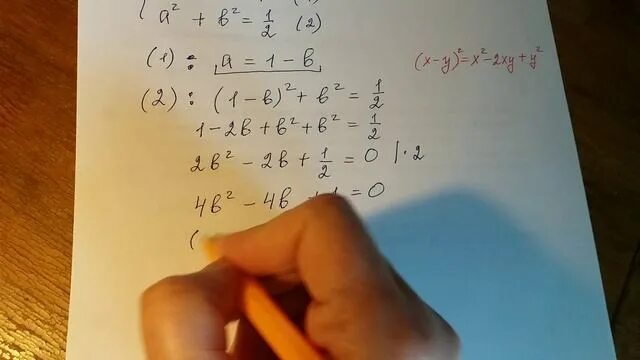 a² + b² = 1/2 (2)
(1) : a = 1 - b
(x-y)² = x² - 2xy + y²
(2) : (1-b)² + b² = 1/2
1 - 2b + b² + b² = 1/2
2b² - 2b + 1/2 = 0 /·2
4b² - 4b + 1 = 0
(